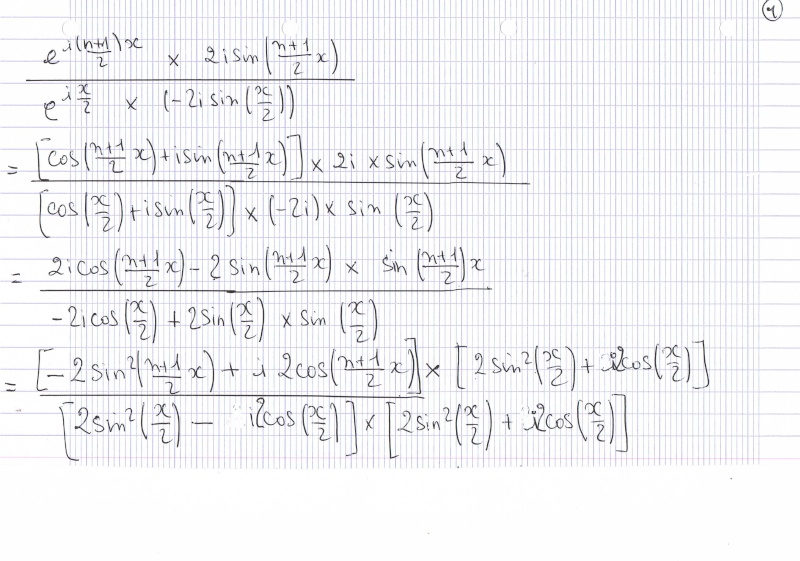 4
e^{i(\frac{n+1}{2})x} × 2i sin(\frac{n+1}{2}x)
e^{i\frac{x}{2}} × (-2i sin(\frac{x}{2}))
= [cos(\frac{n+1}{2}x) + i sin(\frac{n+1}{2}x)] × 2i × sin(\frac{n+1}{2}x)
[cos(\frac{x}{2}) + i sin(\frac{x}{2})] × (-2i) × sin(\frac{x}{2})
= 2i cos(\frac{n+1}{2}x) - 2 sin(\frac{n+1}{2}x) × sin(\frac{n+1}{2})x
-2i cos(\frac{x}{2}) + 2 sin(\frac{x}{2}) × sin(\frac{x}{2})
= [-2 sin²(\frac{n+1}{2}x) + i 2cos(\frac{n+1}{2}x)] × [2 sin²(\frac{x}{2}) + i2cos(\frac{x}{2})]
[2 sin²(\frac{x}{2}) - i2cos(\frac{x}{2})] × [2 sin²(\frac{x}{2}) + i2cos(\frac{x}{2})]